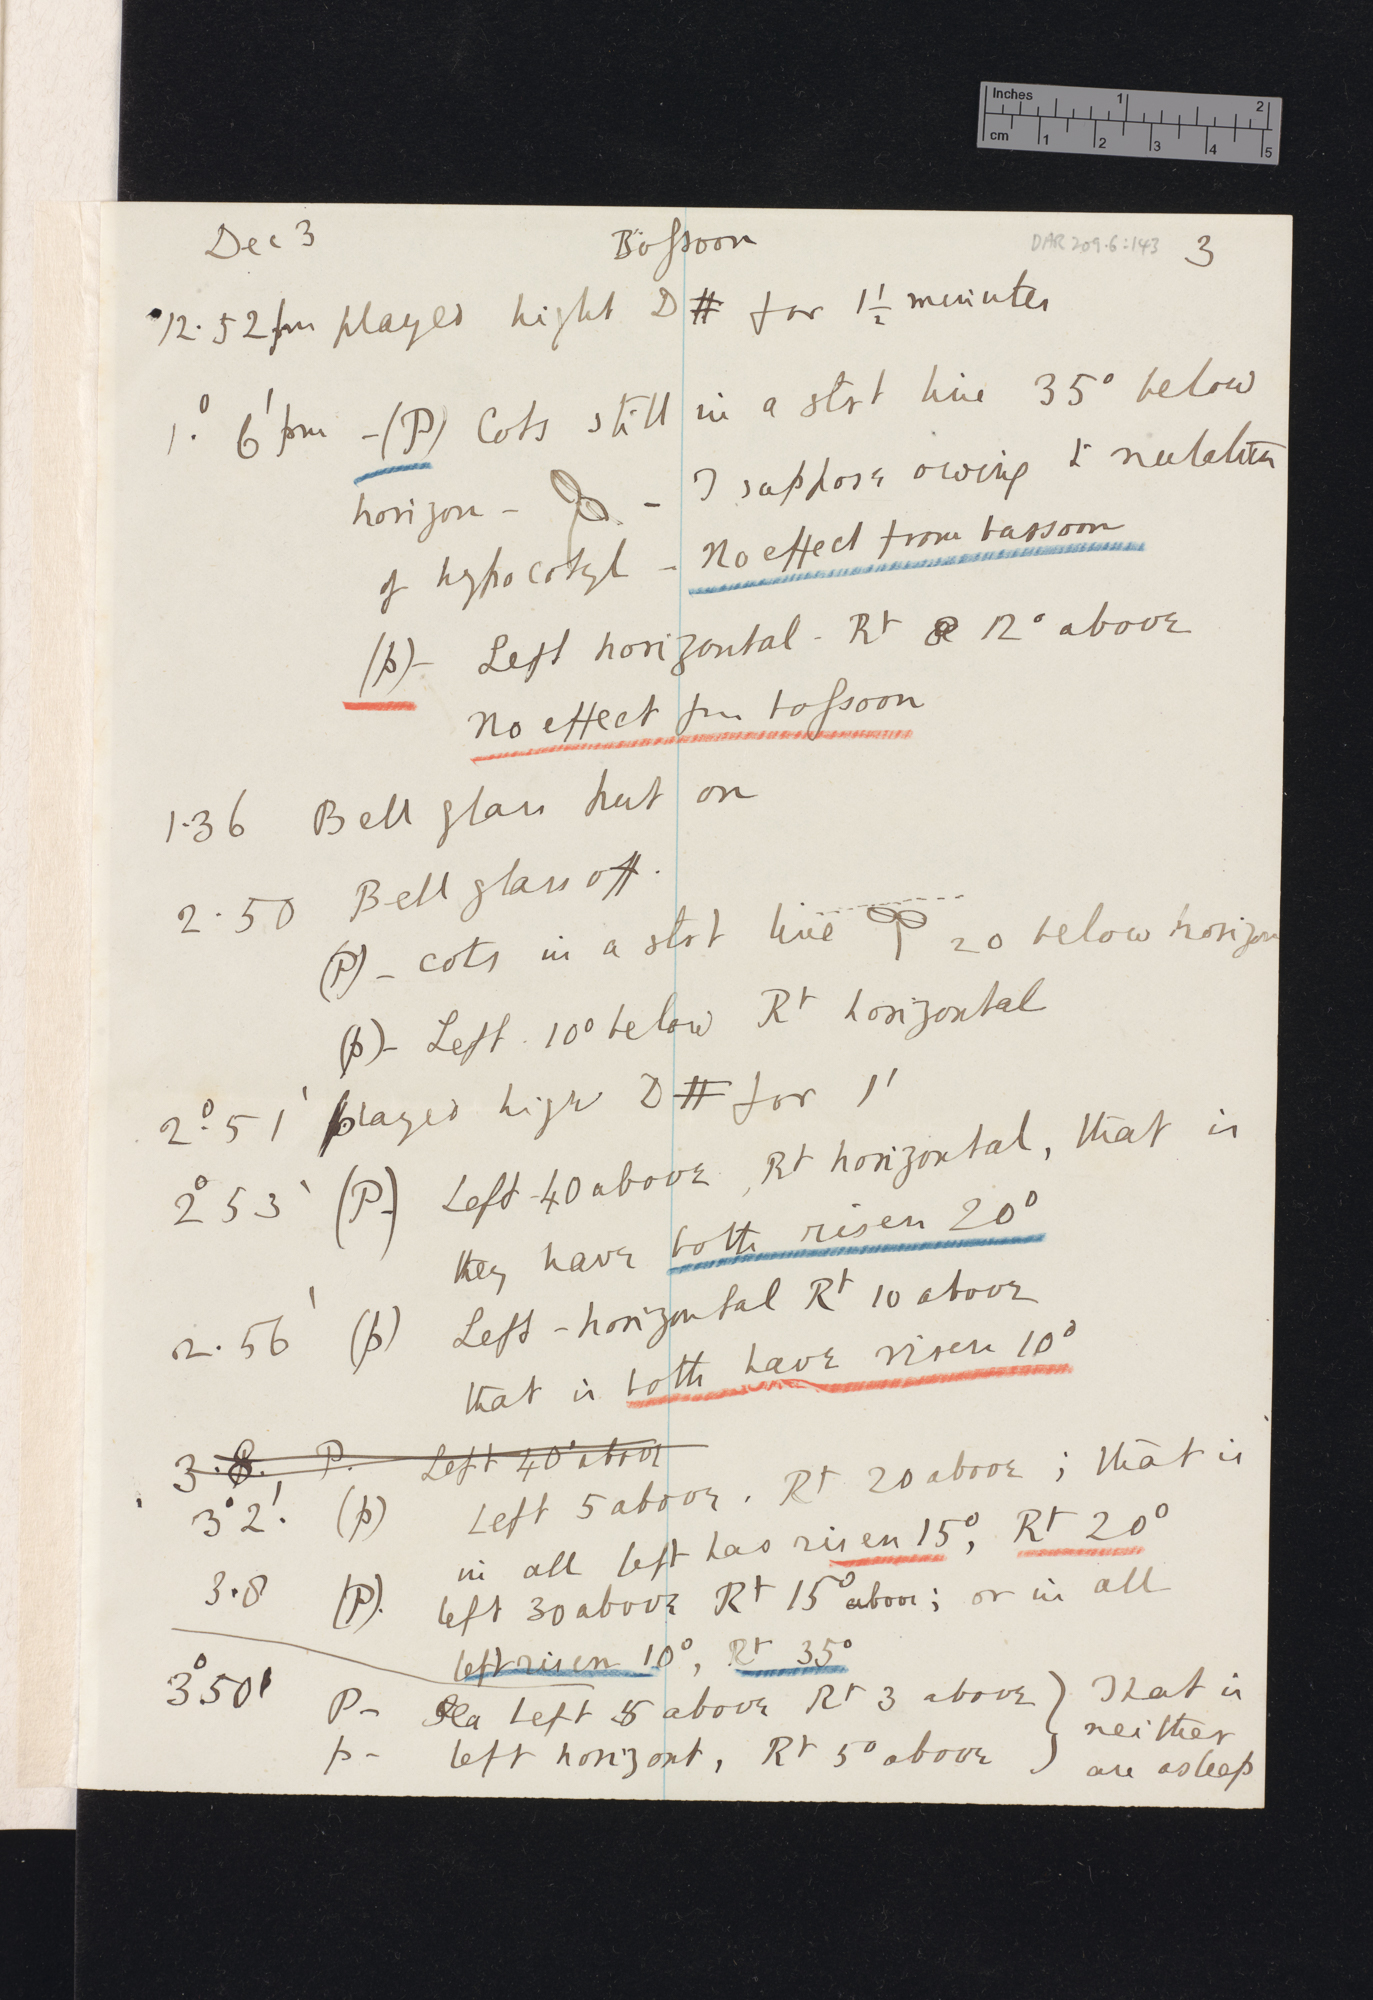 Inches 1 2
cm 1 2 3 4 5
Dec 3 Bassoon DAR 209.6:143 3
12.52 pm played hight D# for 1 1/2 minutes
1.° 6' pm -(P) Cots still in a strt line 35° below
horizon - - I suppose owing to nutation
of hypocotyl - No effect from bassoon
(p)- Left horizontal - Rt 12° above
No effect fm bassoon
1.36 Bell glass put on
2.50 Bell glass off.
(P)- cots in a strt line 20 below horizon
(p)- Left 10° below Rt horizontal
2.° 51' played high D# for 1'
2° 53' (P-) Left -40 above, Rt horizontal, that is
they have both risen 20°
2.56' (p) Left - horizontal Rt 10 above
that is both have risen 10°
3.8. P. Left 40° above
3° 2'. (p) Left 5 above. Rt 20 above; that is
in all left has risen 15°, Rt 20°
3.8 (P). left 30 above Rt 15° above; or in all
left risen 10°, Rt 35°
3° 50' P- Left 5 above Rt 3 above } That is
neither
p- left horizont, Rt 5° above } are asleep